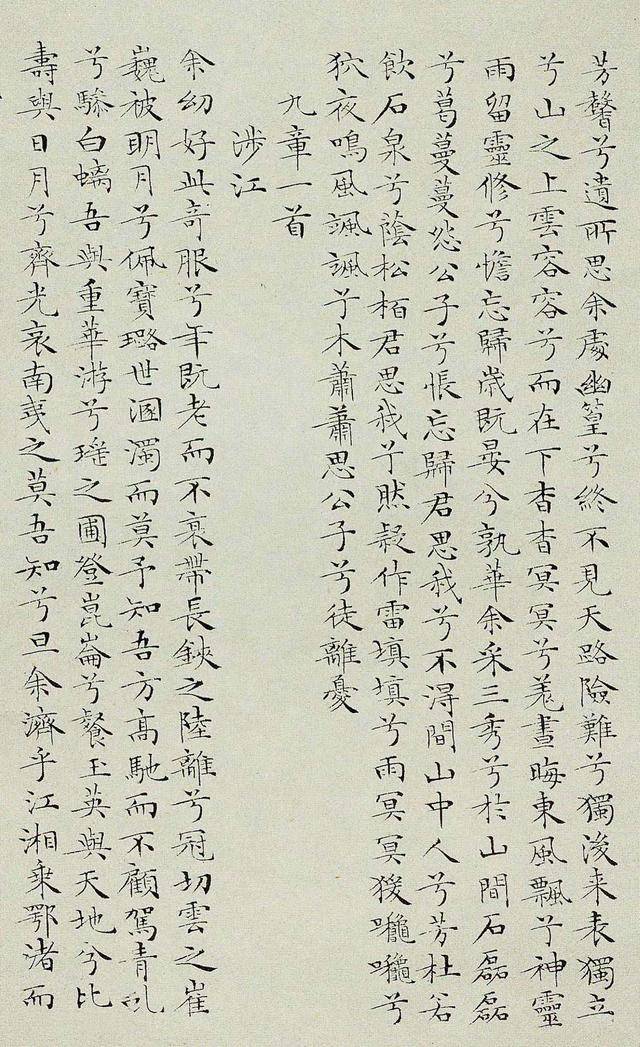 芳馨兮遺所思余處幽篁兮終不見天路險難兮獨後来表獨立
兮山之上雲容容兮而在下杳杳冥冥兮羌晝晦東風飄兮神靈
雨留靈修兮憺忘歸歲既晏兮孰華余采三秀兮於山間石磊磊
兮葛蔓蔓怨公子兮悵忘歸君思我兮不得間山中人兮芳杜若
飲石泉兮蔭松栢君思我兮然疑作雷填填兮雨冥冥猨兮
狖夜鳴風颯颯兮木蕭蕭思公子兮徒離憂
九章一首
涉江
余幼好此竒服兮年既老而不衰帶長鋏之陸離兮冠切雲之崔
巍被明月兮佩寶璐世溷濁而莫予知吾方髙馳而不顧駕青虬
兮驂白螭吾與重華游兮瑤之圃登崑崙兮餐玉英與天地兮比
壽與日月兮齊光哀南夷之莫吾知兮旦余濟乎江湘乗鄂渚而